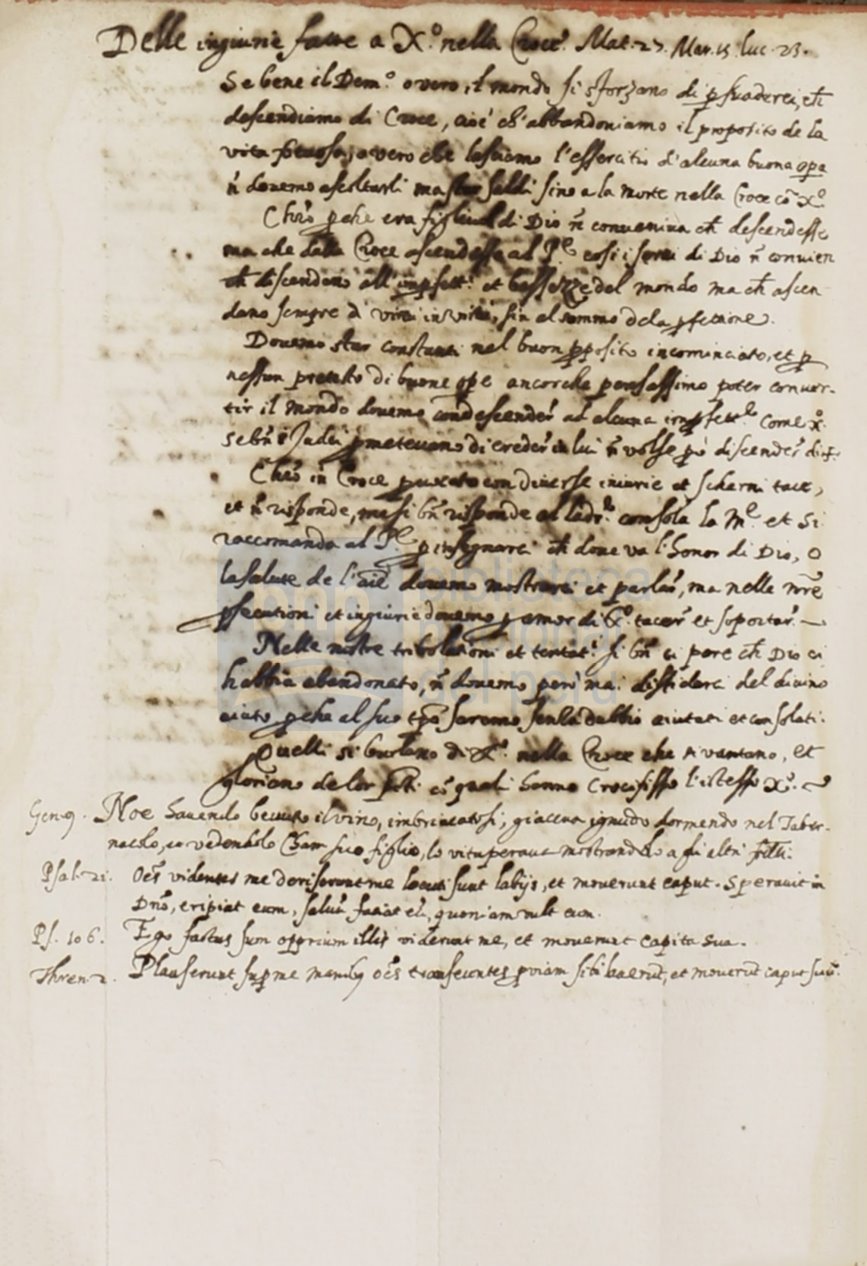 Delle ingiurie fatte a X.º nella Croce. Mat. 27. Mar. 15. luc. 23.
Se bene il Dem.º overo il mondo si sforzano di ꝑsuaderci, ch̄
descendiamo di Croce, cioè ch'abbandoniamo il proposito de la
vita overo che lasciamo l'essercitio d'alcuna buona opa
n̄ dovemo ascoltarli ma star saldi sino a la morte nella Croce cō X.º
Chr̄o ꝑche era figliuol di Dio n̄ conveniva ch̄ descendesse
ma che dalla Croce ascendesse al P.ͤ cosi i servi di Dio n̄ convien
ch̄ discendino all'impfett.ⁱ et bassezze del mondo ma ch̄ ascen
dano sempre di virtù in virtù, sin al sommo dela ꝑfettione.
Dovemo star constanti nel buon ꝓposito incominciato, et ꝑ
nessun pretesto di buone ope ancorche pensassimo poter conver-
tir il mondo dovemo condescender ad alcuna impfett.ͤ Come X.º
sebn̄ i Judei ꝓmetevano di creder in lui n̄ volse ꝑò discender di †.
Chr̄o in Croce con diverse iniurie et scherni tace,
et n̄ risponde, ma si bn̄ risponde al ladr.º consola la M.ͤ et si
raccomanda al P.ͤ ꝑ insegnarci ch̄ dove va l'honor di Dio, o
la salute de l'aīe dovemo mostrarci et parlar, ma nelle nr̄e
ꝑsecutioni et ingiurie dovemo ꝑ amor di X.º tacer et soportar.
Nelle nostre tribolationi et tentat.ⁱ si bn̄ ci pare ch̄ Dio ci
habbia abandonato, n̄ dovemo però mai diffidarci del divino
aiuto ꝑche al suo tp̄o saremo senza dubbio aiutati et consolati.
Quelli si burlano di X.º nella Croce che si vantano, et
gloriano de lor pctī. cō quali hanno Crocifisso l'istesso X.º
Gen. 9. Noe havendo bevuto il vino, imbriacatosi, giaceva ignudo dormendo nel Taber-
nacolo, et vedendolo Cham suo figlio, lo vituperava mostrandolo a li altri frēlli.
Psal. 21. Oēs videntes me deriserunt me locuti sunt labijs, et moverunt caput. Speravit in
Dn̄o, eripiat eum, salvū faciat eū, quoniam vult eum.
Ps. 106. Ego factus sum opprium illis viderunt me, et moverunt capita sua.
Thren. 2. Plauserunt sup me manibꝰ oēs transeuntes ꝑ viam sibilaverūt, et moverūt caput suū.